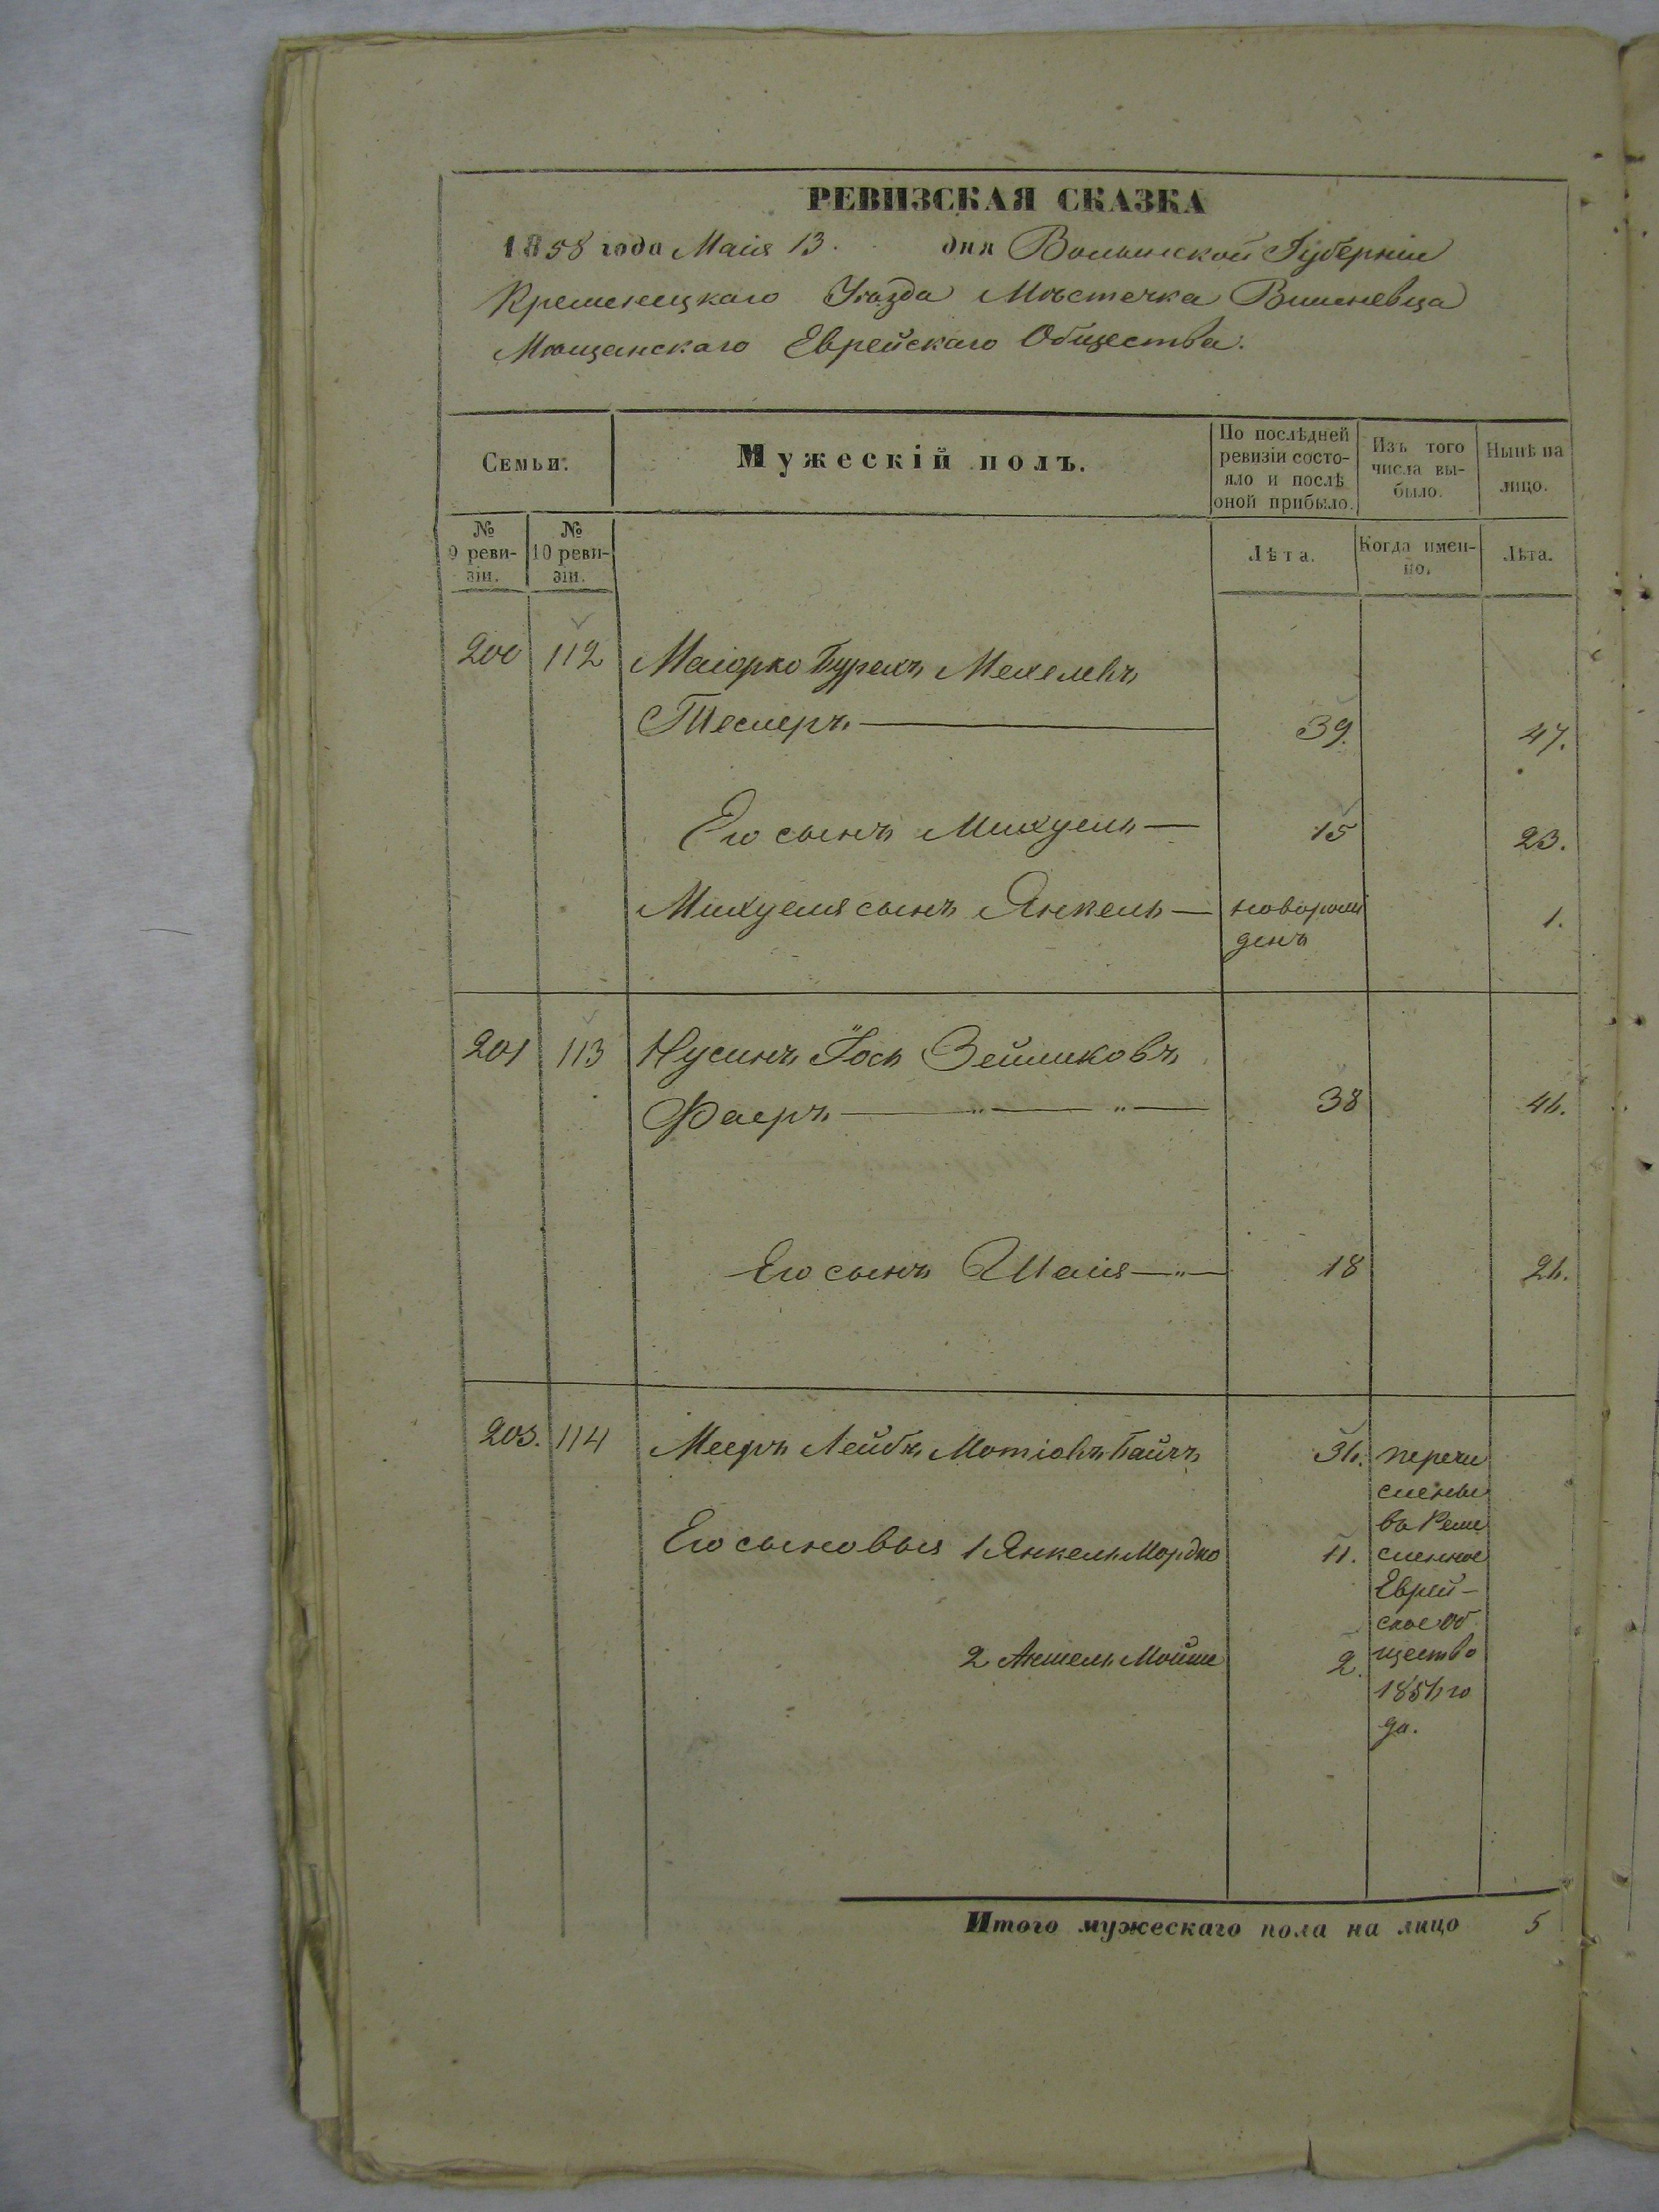 РЕВИЗСКАЯ СКАЗКА
1858 года Маія 13. дня Волынской Губерніи
Кременецкаго Уѣзда Мѣстечка Вишневца
Мѣщанскаго Еврейскаго Общества.
Семьи.
Мужескій полъ.
По послѣдней ревизіи состояло и послѣ оной прибыло.
Изъ того числа выбыло.
Нынѣ на лицо.
№ 9 ревизіи.
№ 10 ревизіи.
Лѣта.
Когда именно.
Лѣта.
200 112 Маіорко Бурехъ Мехелевъ
Теслеръ 39. 47.
Его сынъ Михуель 15 23.
Михуеля сынъ Янкель новорож 1.
денъ
201 113 Нусинъ Іось Зейликовъ
Фаеръ 38 46.
Его сынъ Шаія 18 26.
203. 114 Мееръ Лейбъ Мотіовъ Байчъ 36. перечи
слены
въ Реме
Его сыновья 1 Янкель Мордко 11. сленное
Еврей-
ское Об
2 Аншель Мойше 2. щество
1856 го
да.
Итого мужескаго пола на лицо 5